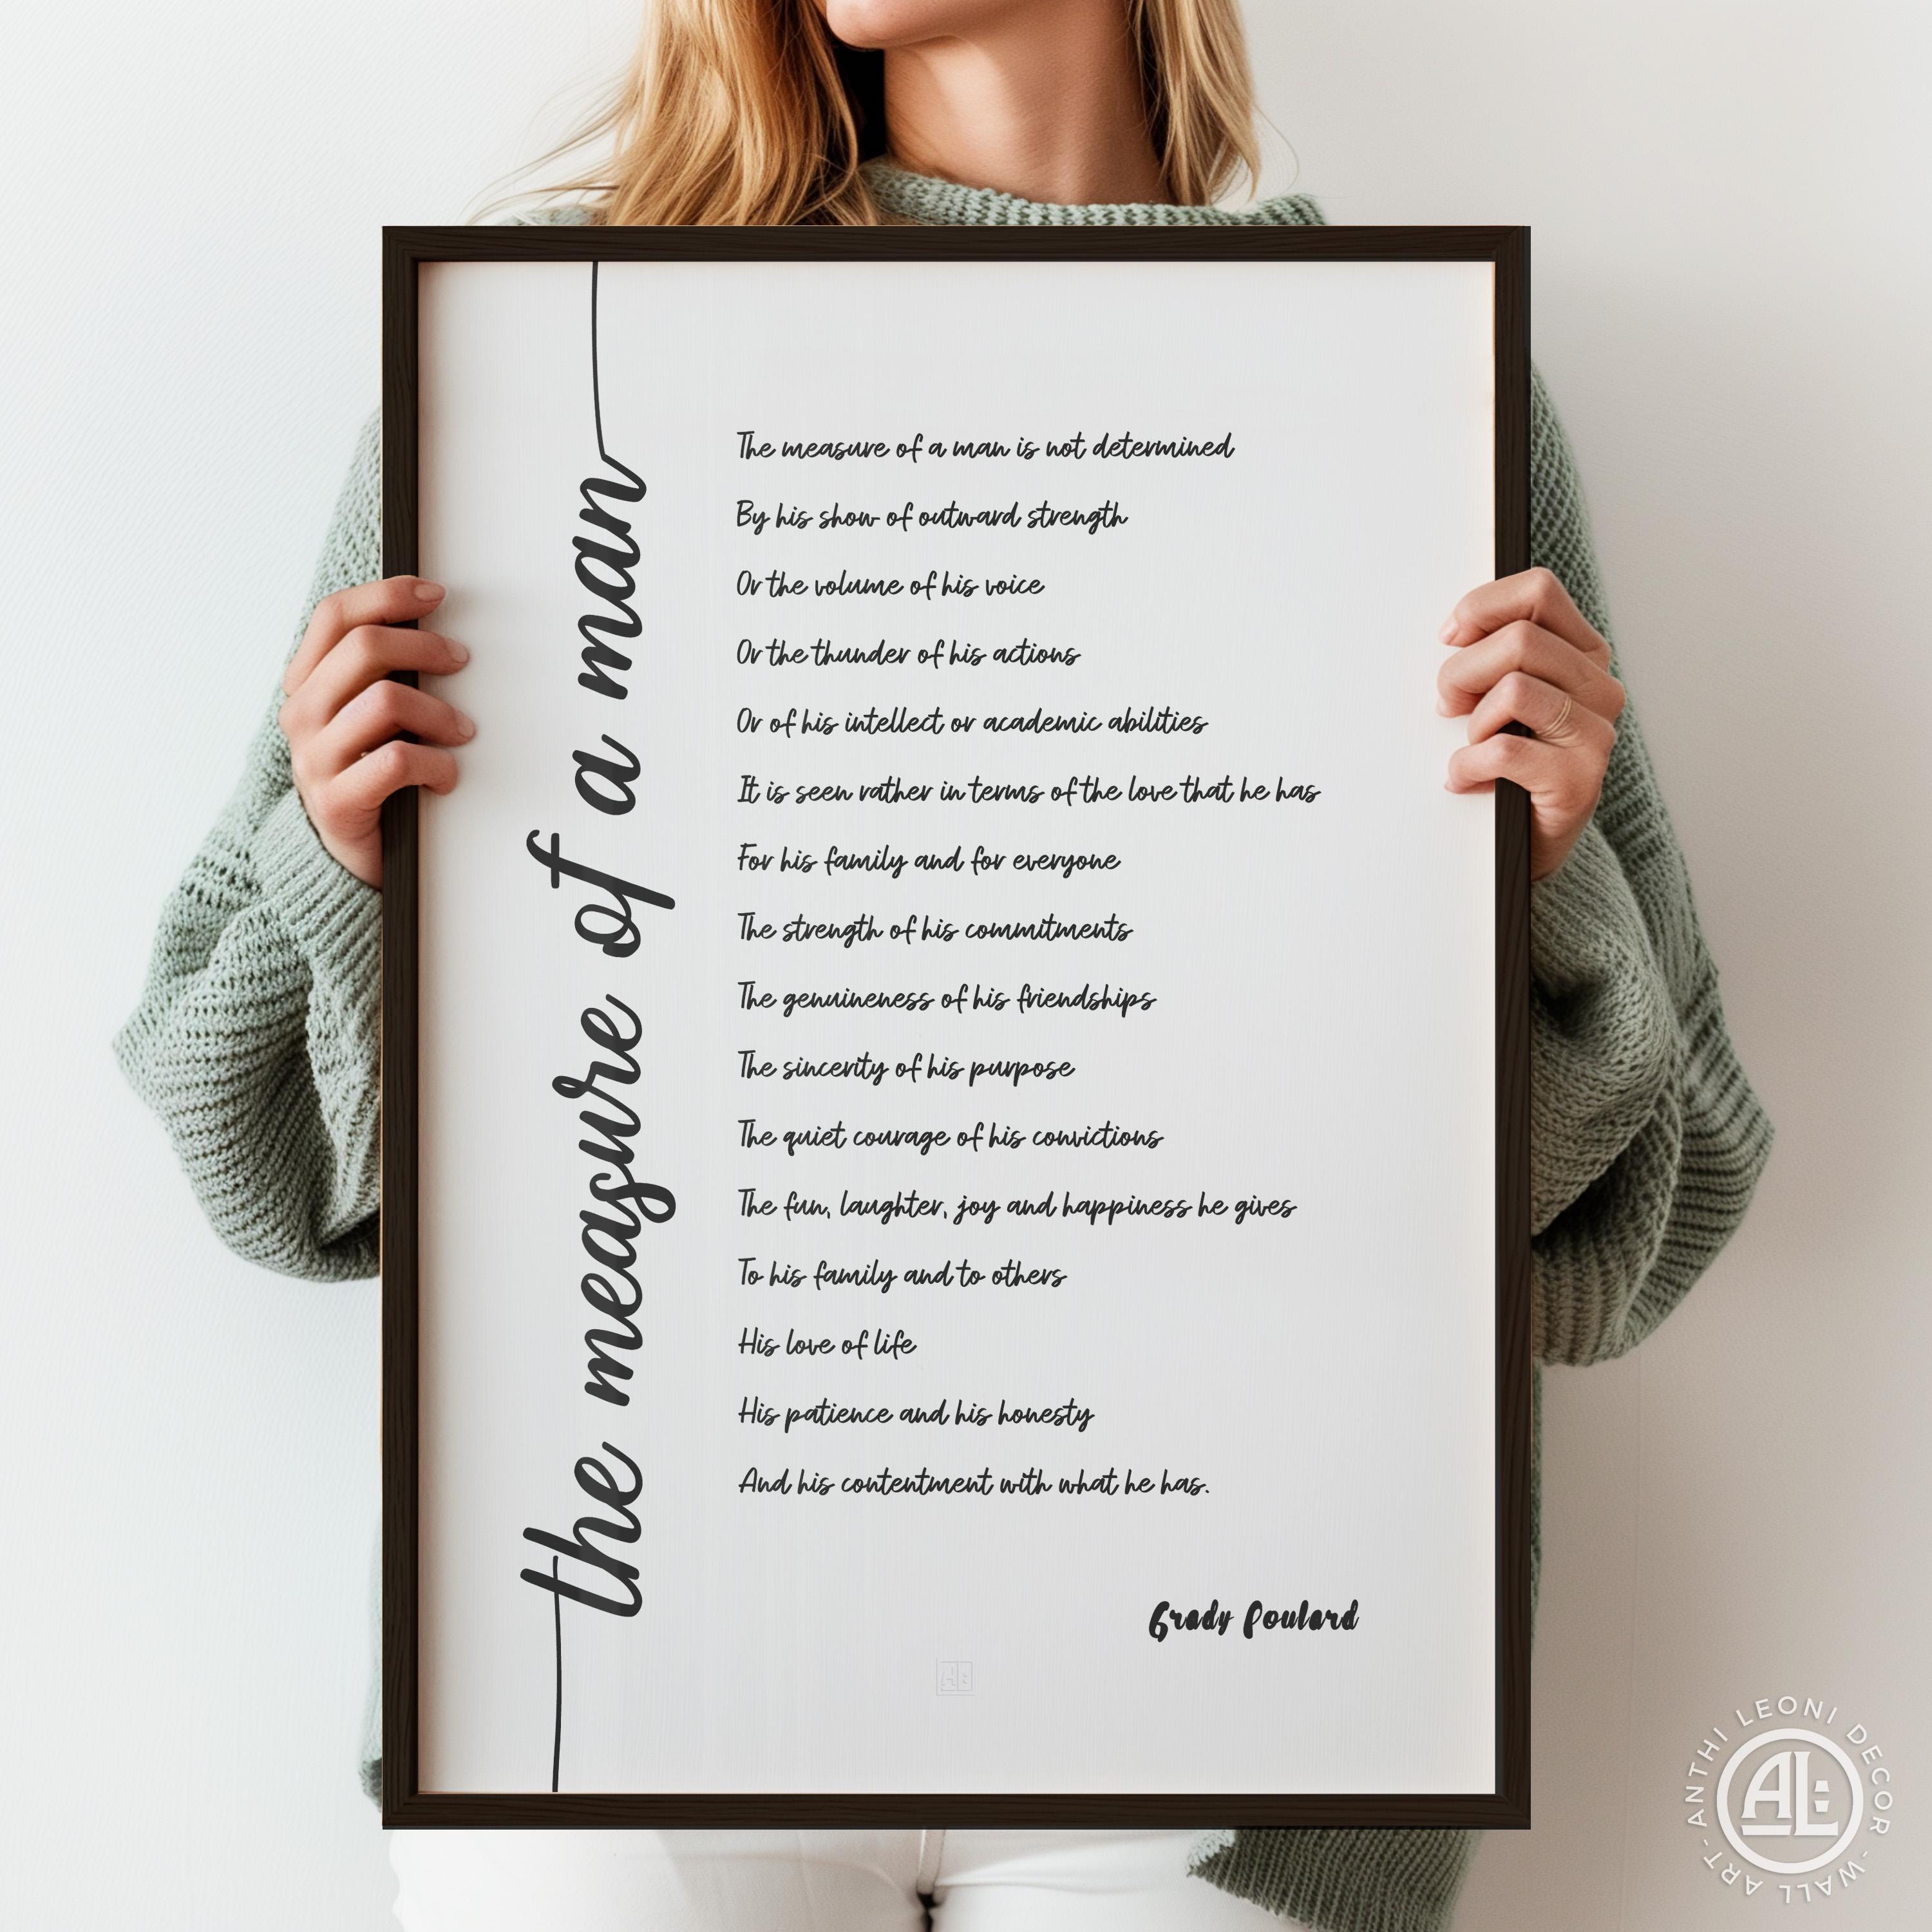 the measure of a man
The measure of a man is not determined
By his show of outward strength
Or the volume of his voice
Or the thunder of his actions
Or of his intellect or academic abilities
It is seen rather in terms of the love that he has
For his family and for everyone
The strength of his commitments
The genuineness of his friendships
The sincerity of his purpose
The quiet courage of his convictions
The fun, laughter, joy and happiness he gives
To his family and to others
His love of life
His patience and his honesty
And his contentment with what he has.
Grady Poulard
ANTHI LEONI DECOR - WALL ART -
AL